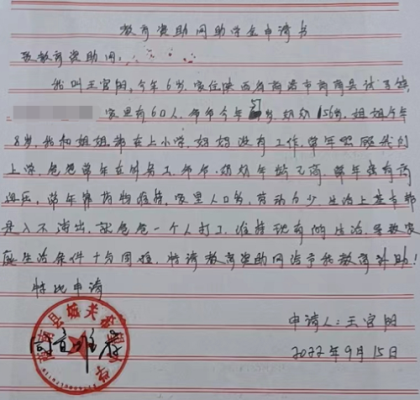 教育资助网助学金申请书
致教育资助网:
我叫王官阳,今年6岁,家住陕西省商洛市商南县试马镇
家里有60人,爷爷今年 岁,奶奶 56岁,姐姐今年
8岁,我和姐姐都在上小学,妈妈没有工作,常年照顾我们
上学,爸爸常年在外务工,爷爷、奶奶年龄已高,常年患有高
血压,常年靠药物维持,家里人口多,劳动力少,生活上基本都
是入不滴出,就爸爸一个人打工,维持现有的生活,导致家
庭生活条件十分困难,特请教育资助网给予我教育补助!
特此申请
申请人:王官阳
2022年9月15日
情况